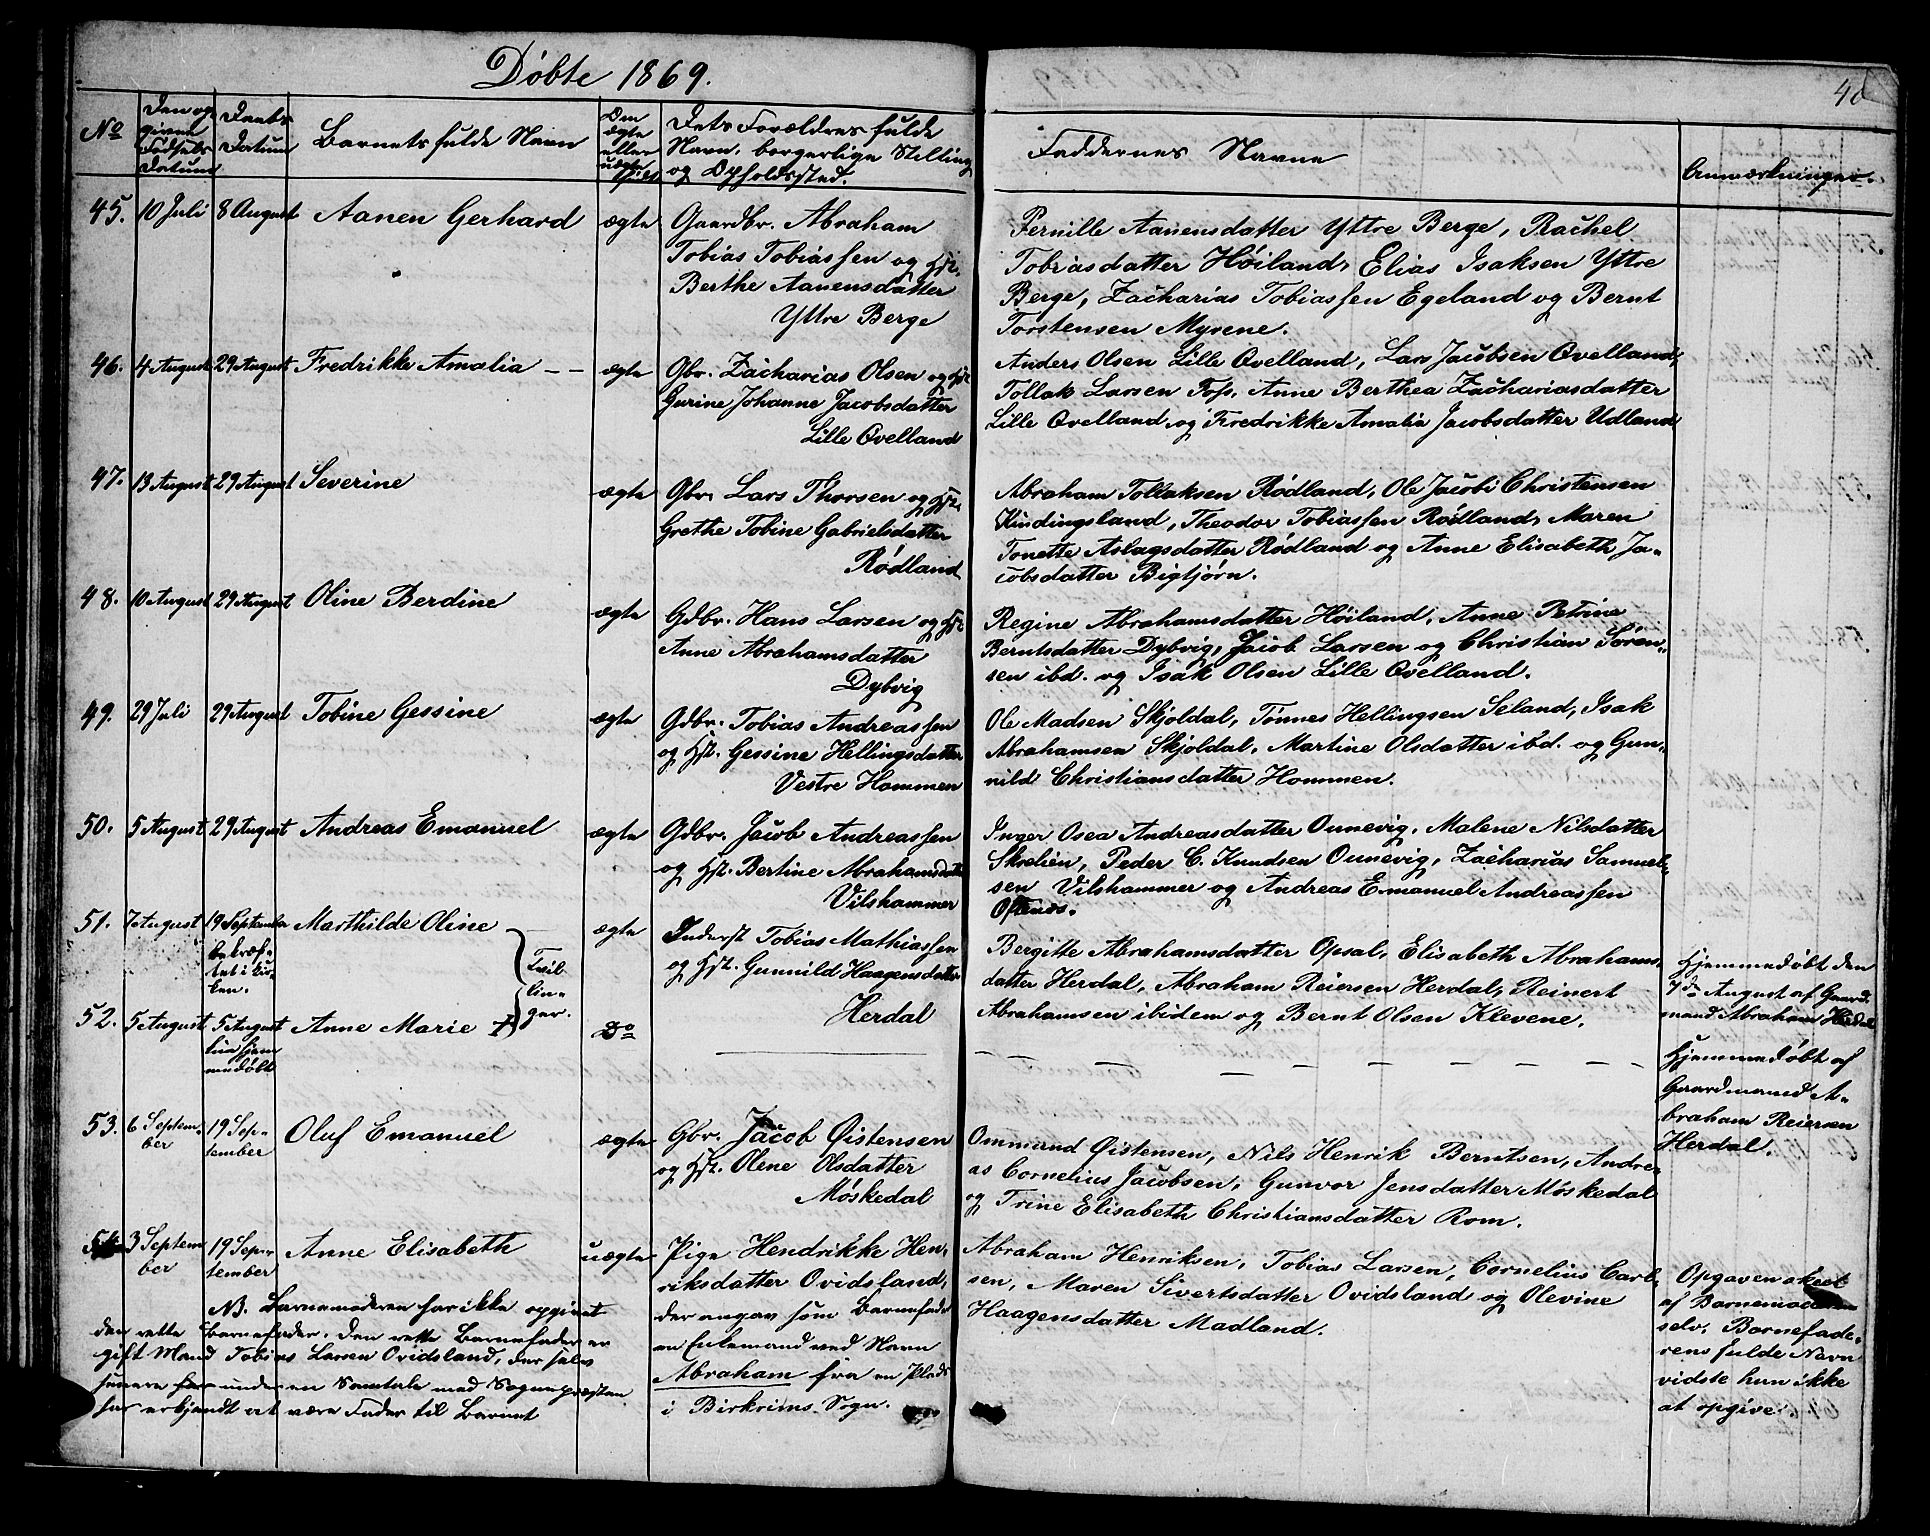 Døbte 1869.
40
No
Den opgivne Fødsels Datum
Daabs Datum
Barnets fulde Navn
Om ægte eller uægte født
Dets Forældres fulde
Navn, borgerlige Stilling
og Opholdssted.
Faddernes Navne
Anmærkninger.
45. 10 Juli 8 August Aanen Gerhard ægte
Gaardbr. Abraham
Tobias Tobiassen og Hst.
Berthe Aanensdatter
Yttre Berge
Pernille Aanensdatter Yttre Berge, Rachel
Tobiasdatter Høiland, Elias Isaksen Yttre
Berge, Zacharias Tobiassen Egeland og Bernt
Torstensen Myrene.
46. 4 August 29 August Fredrikke Amalia – – ægte
Gbr. Zacharias Olsen og Hst
Gurine Johanne Jacobsdatter
Lille Qvelland
Anders Olsen Lille Qvelland, Lars Jacobsen Qvelland,
Tollak Larsen Foss, Anne Berthea Zachariasdatter
Lille Qvelland og Fredrikke Amalia Jacobsdatter Udland
47. 13 August 29 August Severine ægte
Gbr. Lars Thorsen og Hst.
Grethe Tobine Gabrielsdatter
Rødland
Abraham Tollaksen Rødland, Ole Jacobi Christensen
Kindingsland, Theodor Tobiassen Rødland, Maren
Tonette Aslagsdatter Rødland og Anne Elisabeth Ja-
cobsdatter Bigtjørn.
48. 10 August 29 August Oline Berdine ægte
Gdbr. Hans Larsen og Hst
Anne Abrahamsdatter
Dybvig
Regine Abrahamsdatter Høiland, Anne Petrine
Berntsdatter Dybvig, Jacob Larsen og Christian Søren-
sen ibd. og Isak Olsen Lille Qvelland.
49. 29 Juli 29 August Tobine Gessine ægte
Gdbr. Tobias Andreassen
og Hst. Gessine Hellingsdatter
Vestre Hommen
Ole Madsen Skjoldal, Tønnes Hellingsen Seland, Isak
Abrahamsen Skjoldal, Martine Olsdatter ibd. og Gun-
nild Christiansdatter Hommen.
50. 5 August 29 August Andreas Emanuel ægte
Gdbr. Jacob Andreassen
og Hst. Bertine Abrahamsdatter
Vilshammer
Inger Osea Andreasdatter Ounevig, Malene Nilsdatter
Skrelien, Peder C. Knudsen Ounevig, Zacharias Samuel-
sen Vilshammer og Andreas Emanuel Andreassen
Oftenæs.
51. 7 August 19 September Marthilde Oline ægte
bekræf-
tet i Kir-
ken.
Tvil-
lin-
ger.
Inderst Tobias Mathiassen
og Hst. Gunnild Haagensdatter
Herdal
Bergitte Abrahamsdatter Opsal, Elisabeth Abrahams-
datter Herdal, Abraham Reiersen Herdal, Reinert
Abrahamsen ibidem og Bernt Olsen Klevene.
Hjemmedøbt den
7de August af Gaard-
mand Abraham Herdal
52. 5 August 5 August Anne Marie † Do
hjem
medøbt
Hjemmedøbt af
Gaardmand A-
braham Reiersen
Herdal.
53. 6 Septem-
ber
19 Sep-
tember
Oluf Emanuel ægte
Gbr. Jacob Øistensen
og Hst. Olene Olsdatter
Møskedal
Ommund Øistensen, Nils Henrik Berntsen, Andre-
as Cornelius Jacobsen, Gunvor Jensdatter Møskedal
og Trine Elisabeth Christiansdatter Rom.
54. 3 Septem
ber
19 Sep-
tember
Anne Elisabeth uægte
Pige Hendrikke Hen-
riksdatter Ovidsland,
der angav som Barnefader
en Enkemand ved Navn
Abraham fra en Plads
i Birkrims Sogn.
Abraham Henriksen, Tobias Larsen, Cornelius Carl-
sen, Maren Sivertsdatter Ovidsland og Olevine
Haagensdatter Madland.
Opgaven skeet
af Barnemoderen
selv. Barnefade-
rens fulde Navn
vidste hun ikke
at opgive.
NB. Barnemoderen har ikke opgivet
den rette Barnefader. Den rette Barnefader er
gift Mand Tobias Larsen Ovidsland, der selv
senere har under en Samtale med Sognepræsten
har erkjendt at være Fader til Barnet